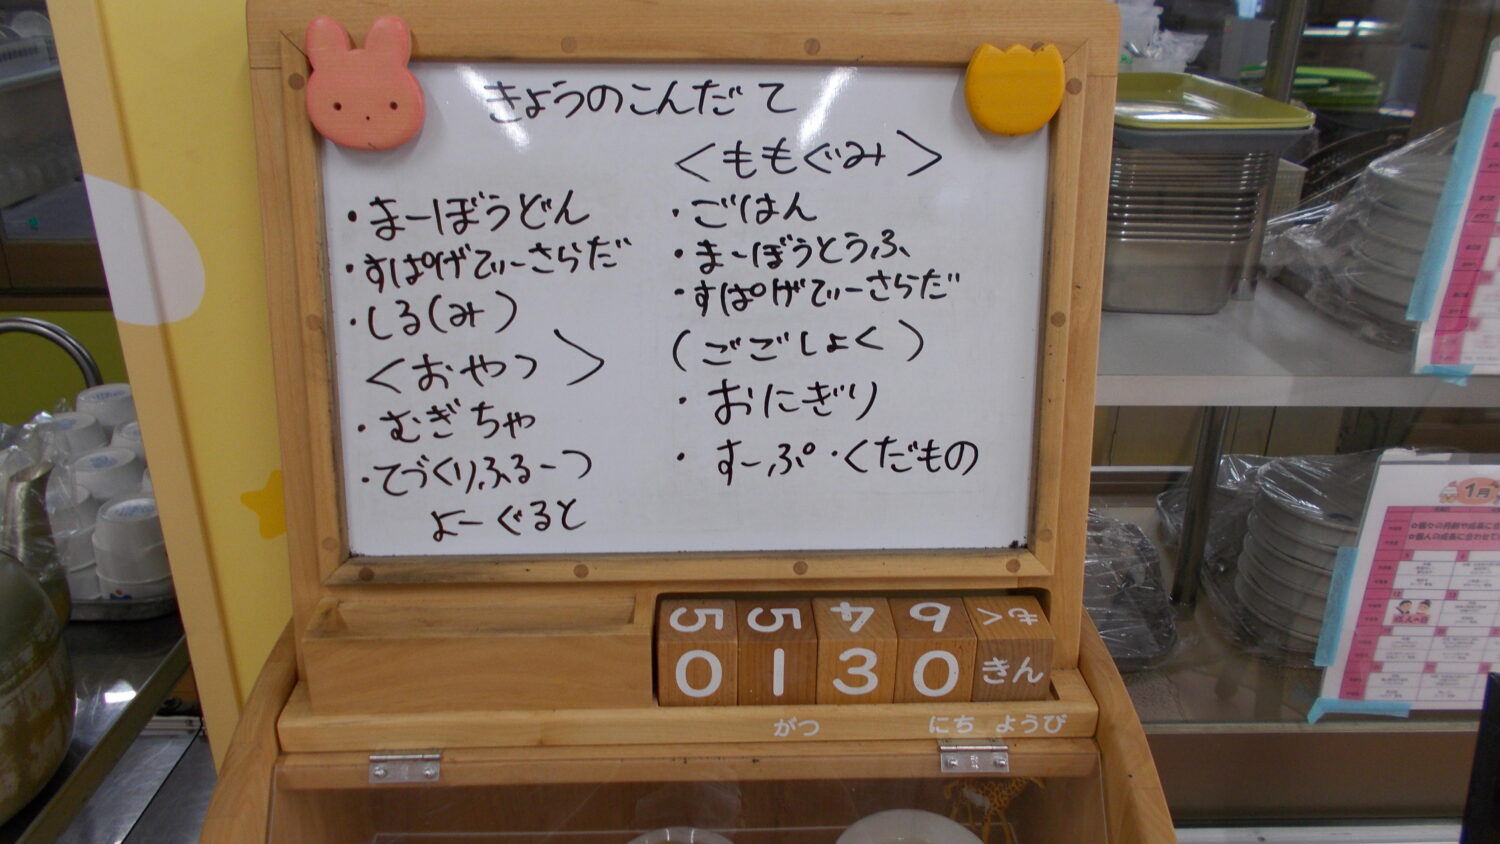 きょうのこんだて
・まーぼうどん
・すぱげてぃーさらだ
・しる(みそ)
＜おやつ＞
・むぎちゃ
・てづくりふるーつ
よーぐると
＜ももぐみ＞
・ごはん
・まーぼうとうふ
・すぱげてぃーさらだ
(ごごしょく)
・おにぎり
・すーぷ・くだもの
5 5 4 6 もく
0 1 3 0 きん
がつ にち ようび
1月